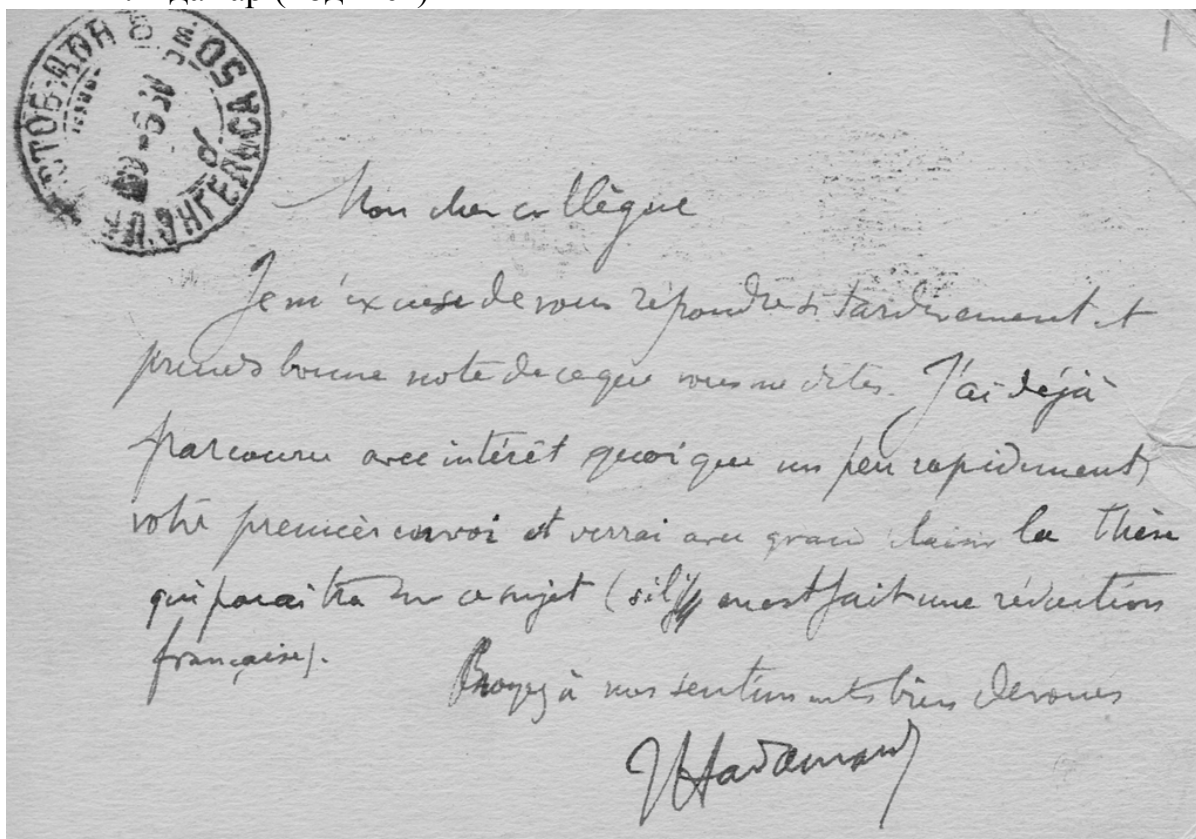 Mon cher collègue
Je m'excuse de vous répondre si tardivement et
prends bonne note de ce que vous me dites. J'ai déjà
parcouru avec intérêt quoique un peu rapidement,
votre premier envoi et verrai avec grand plaisir la thèse
qui paraîtra sur ce sujet (s'il en est fait une rédaction
française).
Croyez à mes sentiments bien dévoués
J Hadamard
50
1